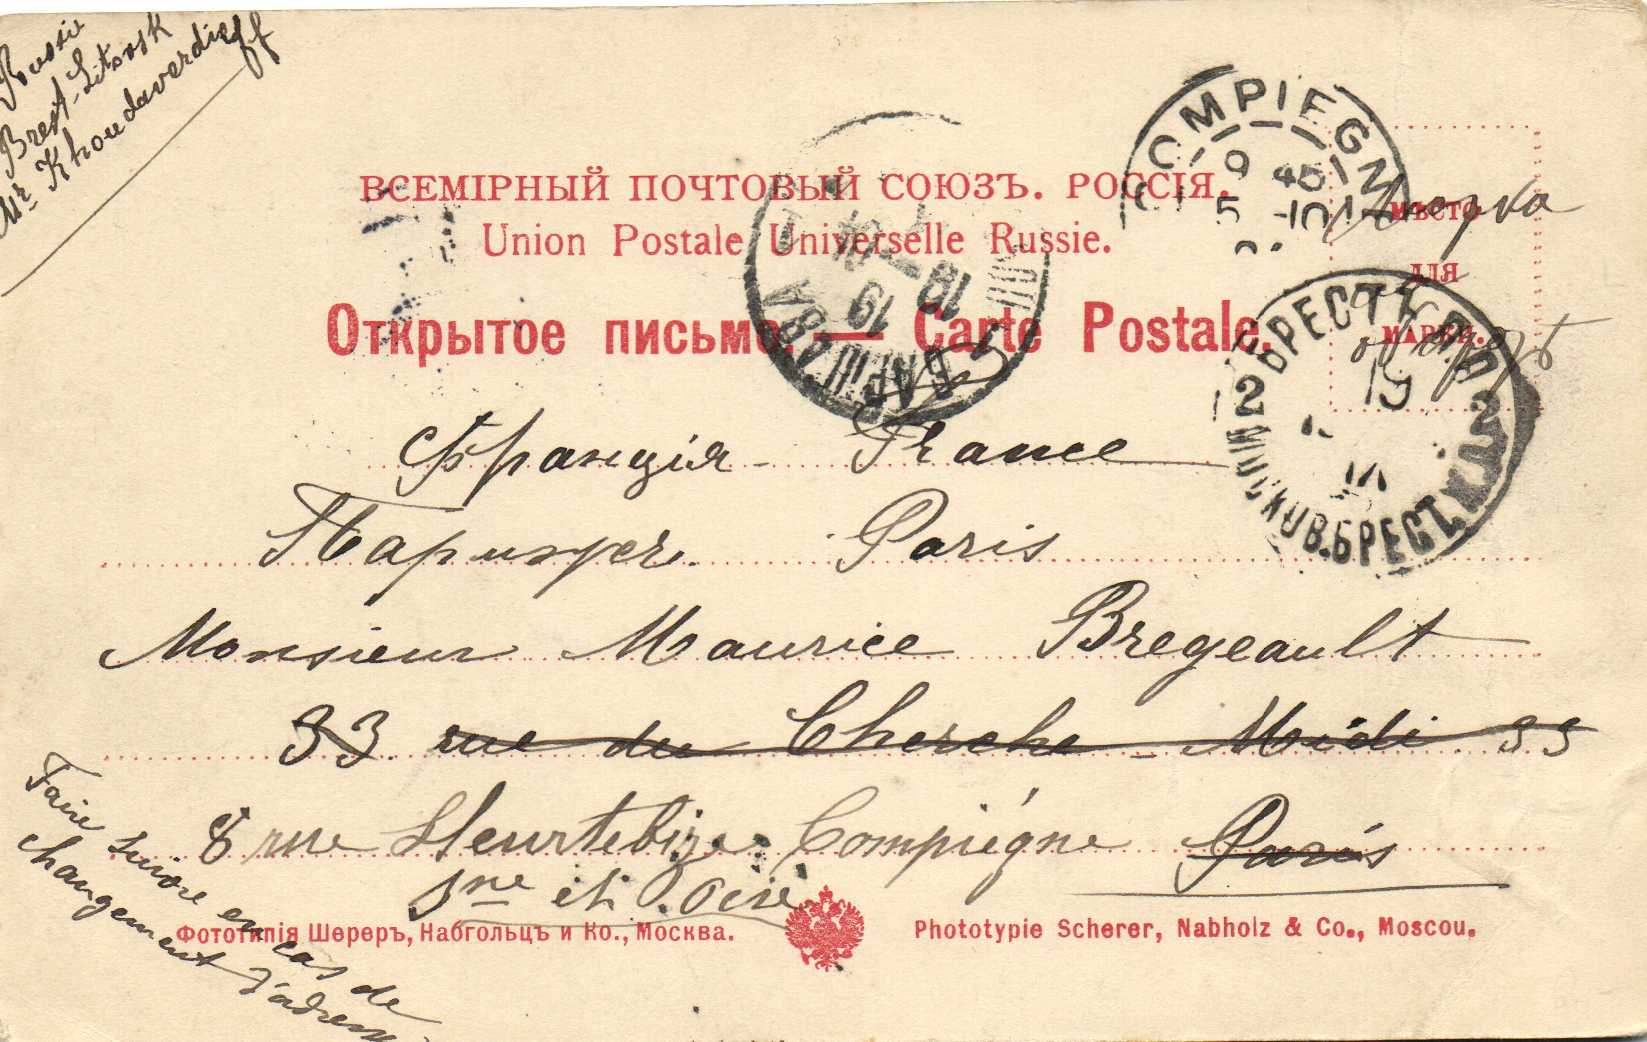 Russie
Brest-Litovsk
Mr Khoudaverdieff
ВСЕМІРНЫЙ ПОЧТОВЫЙ СОЮЗЪ. РОССІЯ.
Union Postale Universelle Russie.
Открытое письмо. — Carte Postale.
МѢСТО
ДЛЯ
МАРКИ.
Марка
на
обороте
COMPIEGN
9 45
5 -10
ВАРШАВА
19
БРЕСТЪ
2 2
19
МОСКОВ.БРЕСТ.Ж
Франція - France
Парижъ. Paris
Monsieur Maurice Bregeault
33 rue du Cherche-Midi 33
8 rue Heurtebize Compiégne Paris
Sne et Oise
Faire suivre en cas de
changement d'adresse
Фототипія Шереръ, Набгольцъ и Ко., Москва.
Phototypie Scherer, Nabholz & Co., Moscou.